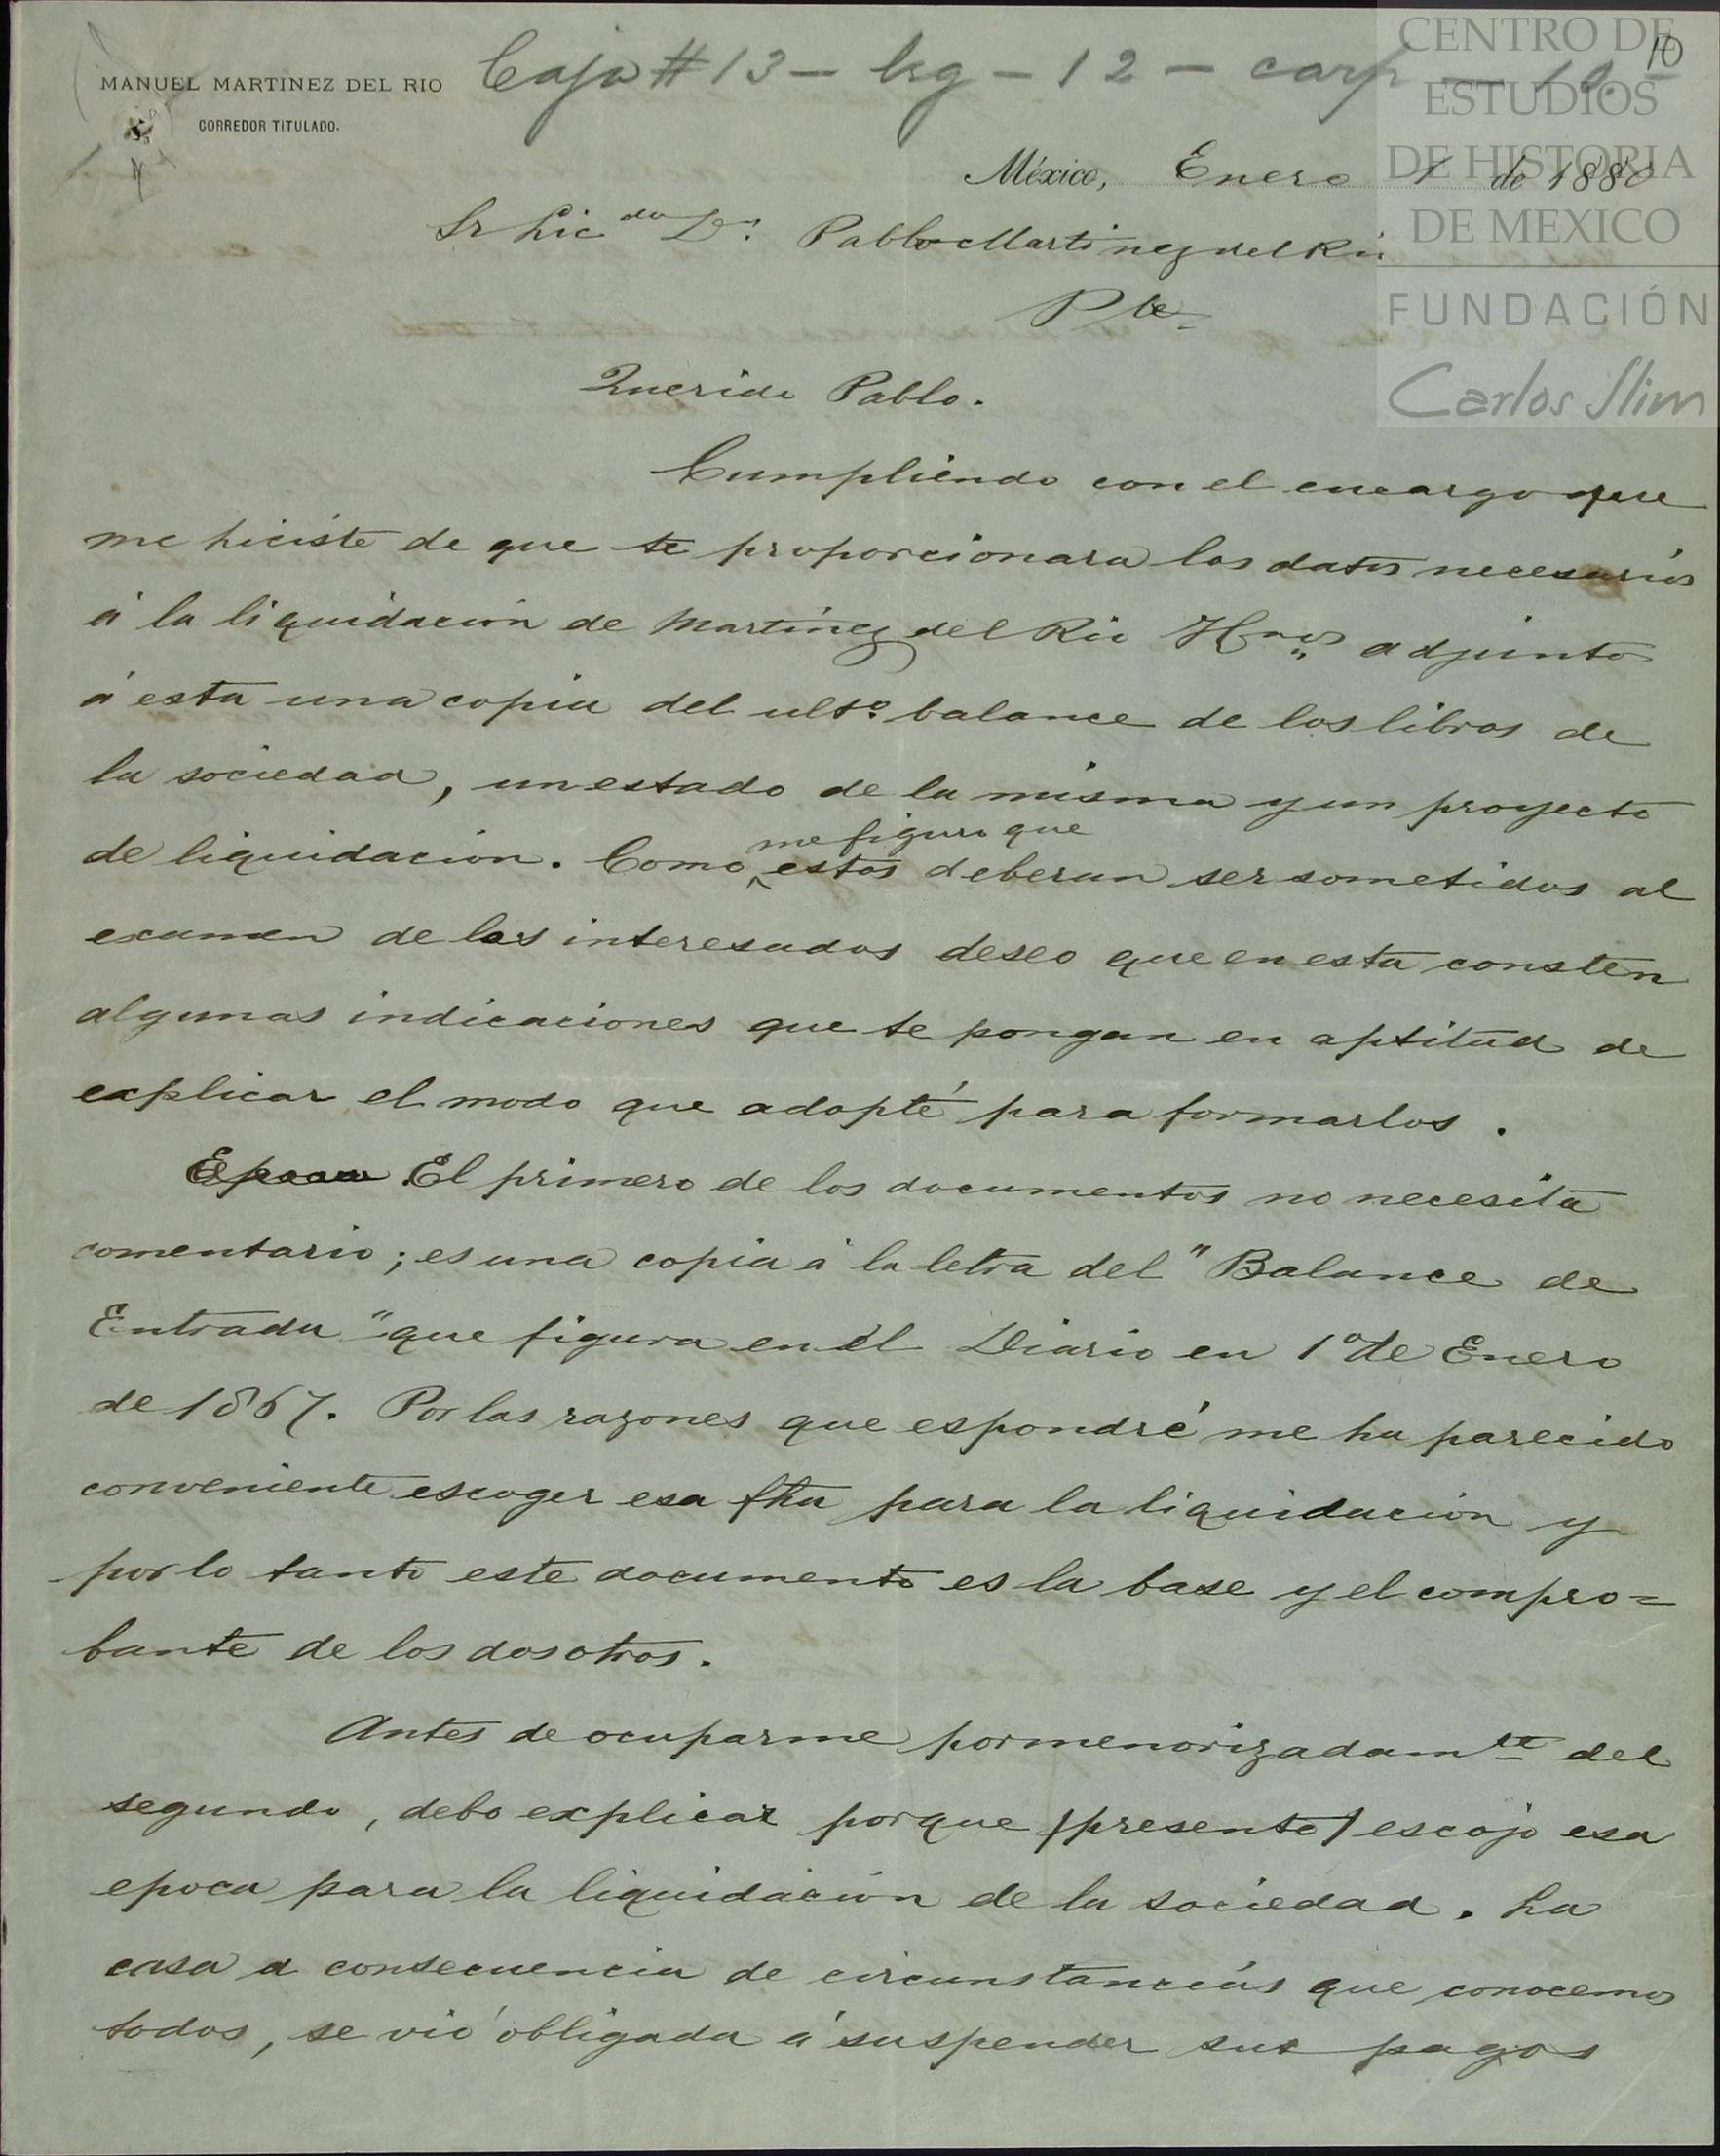 Caja #13 - leg - 12 - carp - 10.
10
MANUEL MARTINEZ DEL RIO
CORREDOR TITULADO.
CENTRO DE
ESTUDIOS
DE HISTORIA
DE MEXICO
FUNDACIÓN
Carlos Slim
México, Enero 1 de 1880
Sr Licdo Dn. Pablo Martinez del Rio
Pte
Querido Pablo.
Cumpliendo con el encargo que
me hiciste de que te proporcionara los datos necesarios
á la liquidacion de Martínez del Rio Hnos adjunto
á esta una copia del ulto. balance de los libros de
la sociedad, un estado de la misma y un proyecto
de liquidacion. Como me figuro que estos deberan ser sometidos al
examen de los interesados deseo que en esta consten
algunas indicaciones que te pongan en aptitud de
explicar el modo que adopté para formarlos.
Epoca El primero de los documentos no necesita
comentario; es una copia á la letra del "Balance de
Entrada" que figura en el Diario en 1o de Enero
de 1867. Por las razones que espondré me ha parecido
conveniente escoger esa fha para la liquidacion y
por lo tanto este documento es la base y el compro=
bante de los dos otros.
Antes de ocuparme pormenorizadamte del
segundo, debo explicar porque (presento) escojo esa
epoca para la liquidacion de la sociedad. La
casa a consecuencia de circunstancias que conocemos
todos, se vió obligada á suspender sus pagos